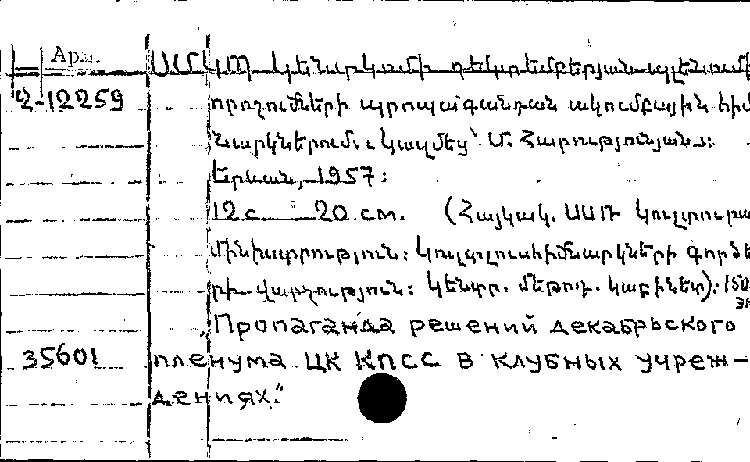 Арм.
ՍՄԿՊ Կենտրկոմի դեկտեմբերյան պլենումի
Հ-12259 որոշումների պրոպագանդան ակումբային հիմ
նարկներում։ Կազմեց՝ Մ. Հարությունյան։
Երևան, 1957։
12 с. 20 cm. (Հայկակ. ՍՍՌ Կուլտուրայի
մինիստրություն։ Կուլտլուսհիմնարկների գործե
րի վարչություն։ Կենտր. մեթոդ. կաբինետ)։ 150
„Пропаганда решений декабрьского
35601 пленума ЦК КПСС в клубных учреж-
дениях."